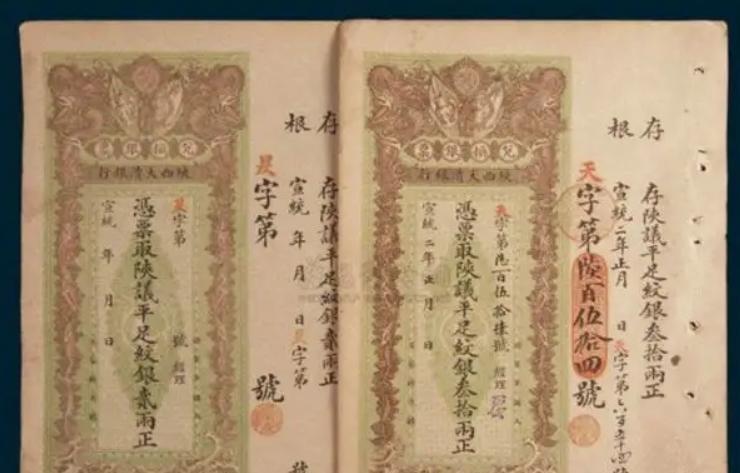 存根
存陝議平足紋銀叁拾兩正
宣統二年正月 日
天字第陸百伍拾四號
兌換銀票
陝西大清銀行
天字第陸百伍拾 號 經理
憑票取陝議平足紋銀叁拾兩正
宣統二年正月 日
存根
存陝議平足紋銀貳兩正
宣統 年 月 日 字第
字第 號
兌換銀票
陝西大清銀行
字第 號 經理
憑票取陝議平足紋銀貳兩正
宣統 年 月 日